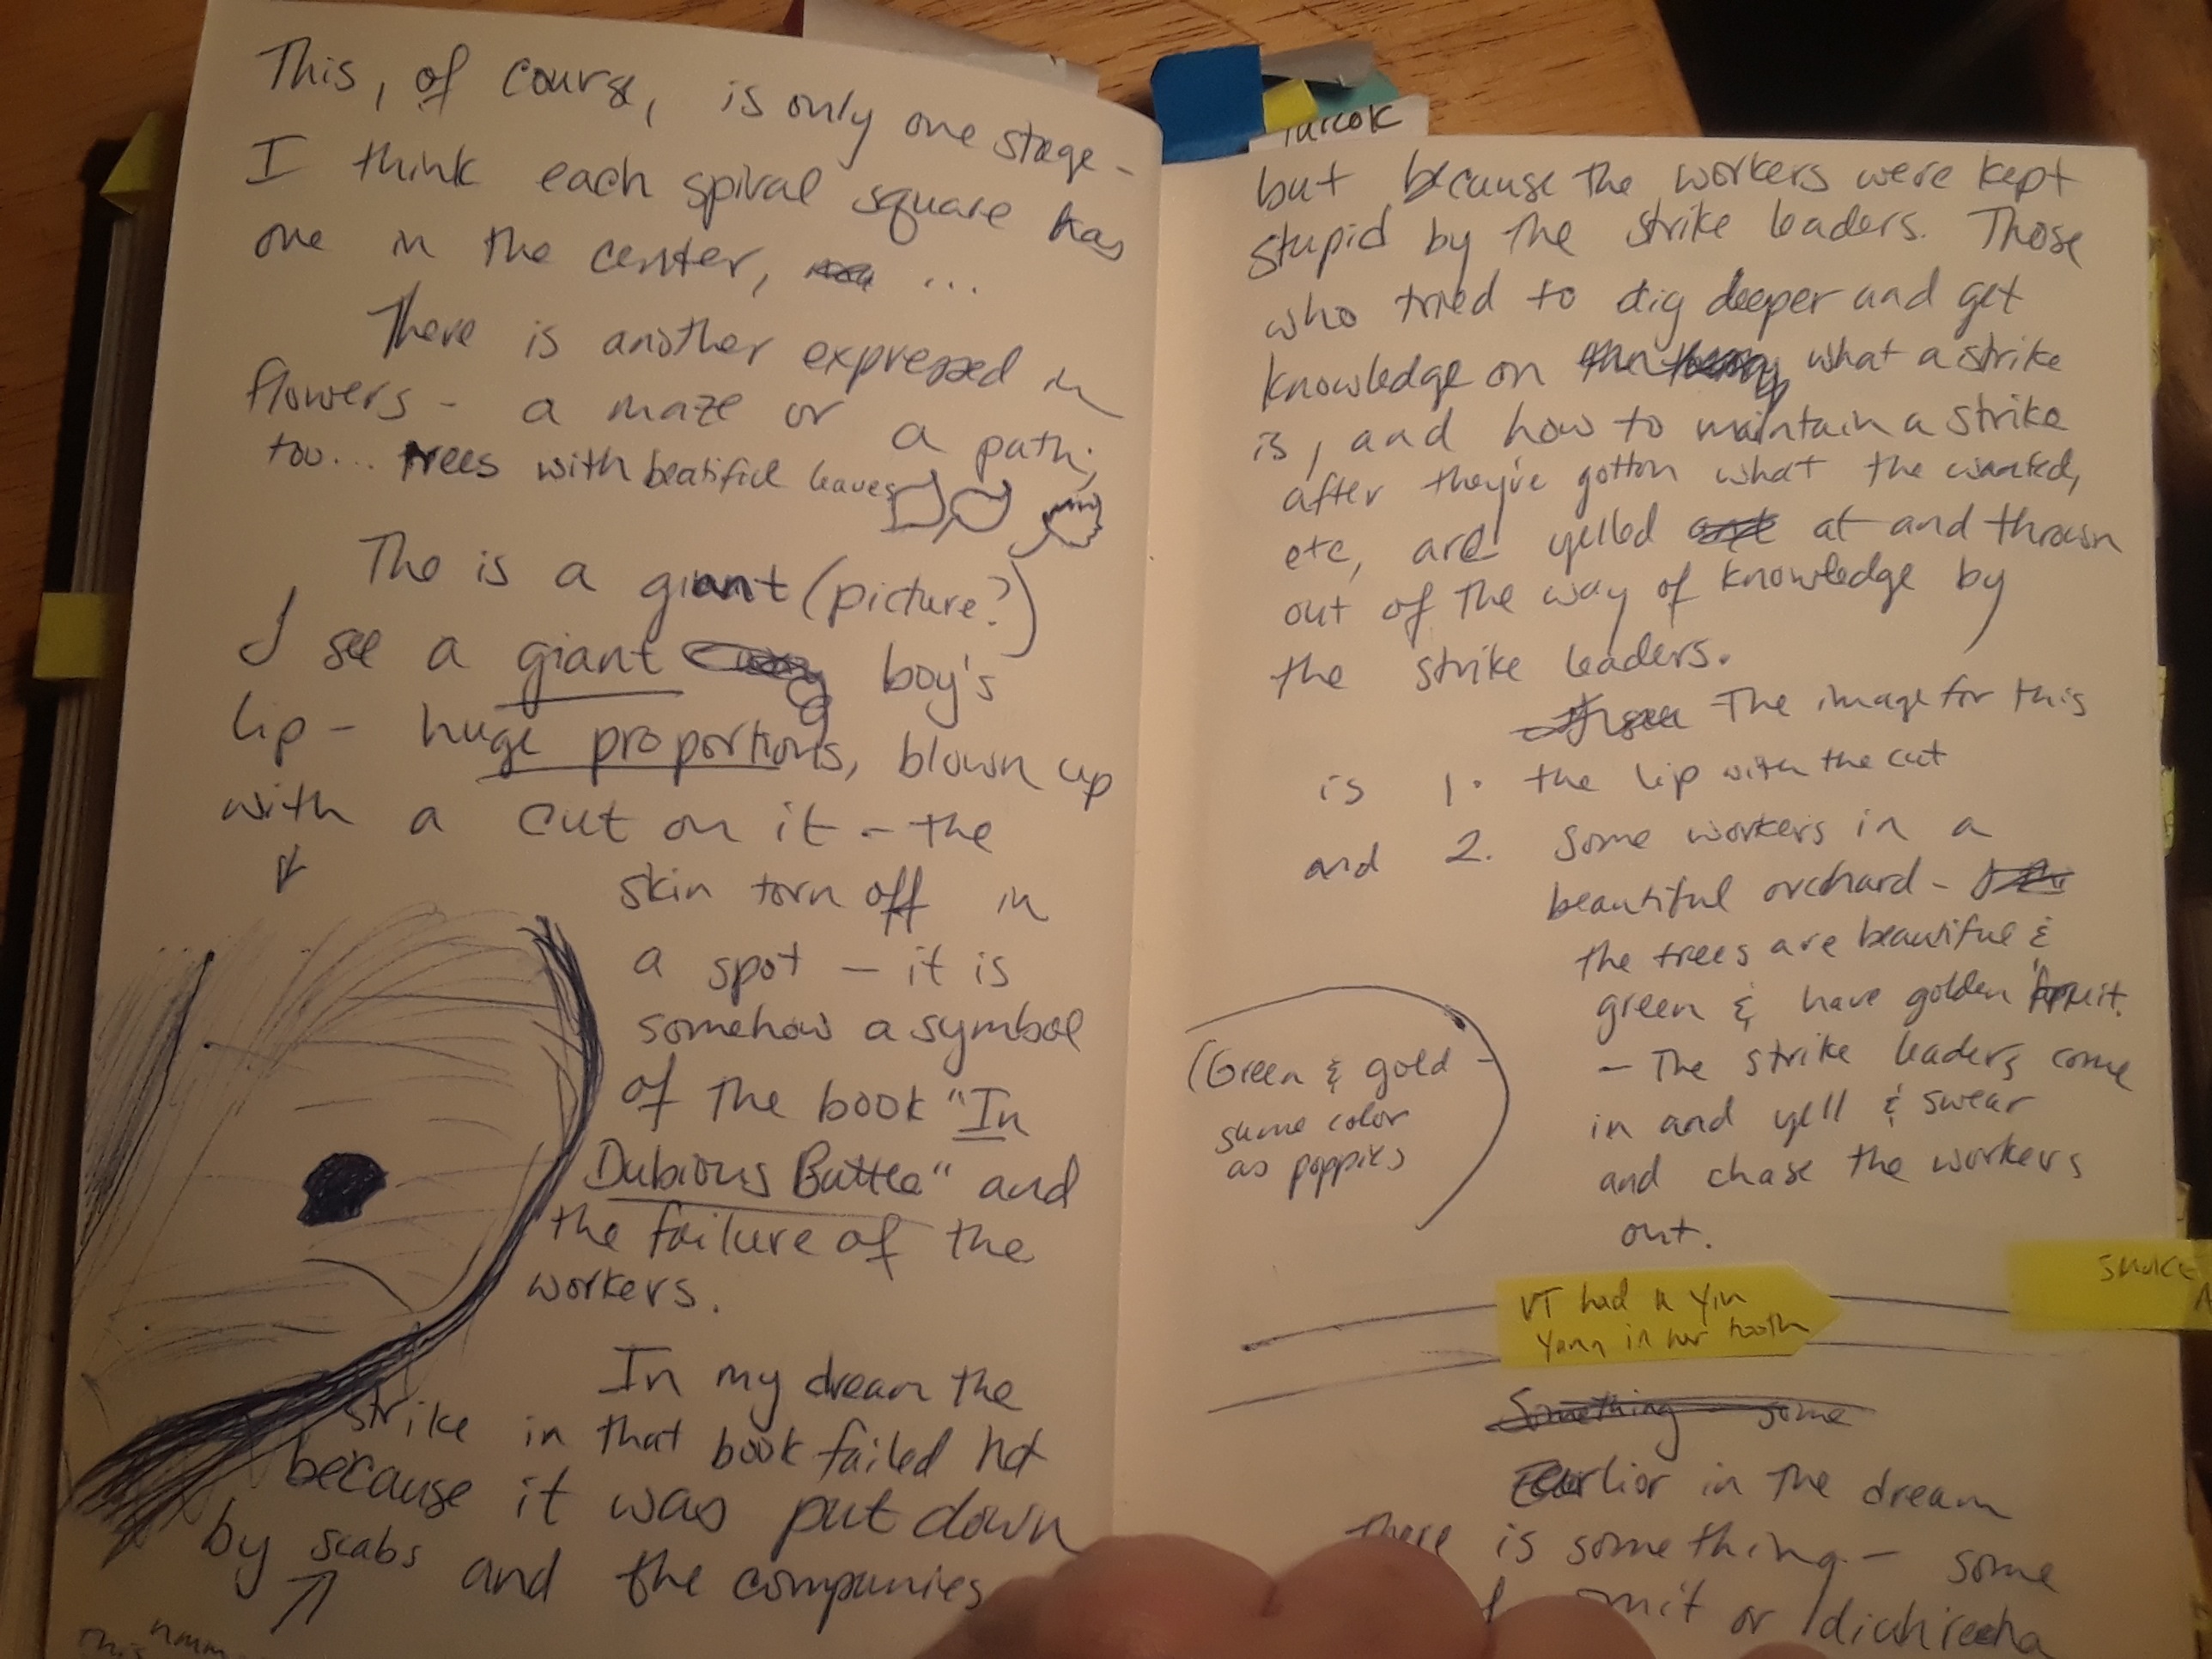 This, of course, is only one stage -
I think each spiral square has
one in the center, ...
There is another expressed in
flowers - a maze or a path;
too... trees with beatifull leaves
The is a giant (picture?)
I see a giant boy's
lip - huge proportions, blown up
with a cut on it - the
skin torn off in
a spot - it is
somehow a symbol
of the book "In
Dubious Battle" and
the failure of the
workers.
In my dream the
strike in that book failed not
because it was put down
by scabs and the companies
this hmm
Turcok
but because the workers were kept
stupid by the strike leaders. Those
who tried to dig deeper and get
knowledge on what a strike
is, and how to maintain a strike
after they've gotton what the wanted,
etc, are yelled at and thrown
out of the way of knowledge by
the strike leaders.
The image for this
is 1. the lip with the cut
and 2. Some workers in a
beautiful orchard -
the trees are beautiful &
green & have golden fruit.
- The strike leaders come
in and yell & swear
and chase the workers
out.
(Green & gold -
same color
as poppies
VT had a Yin
Yann in her tooth
Something - some
Earlior in the dream
there is something - some
or